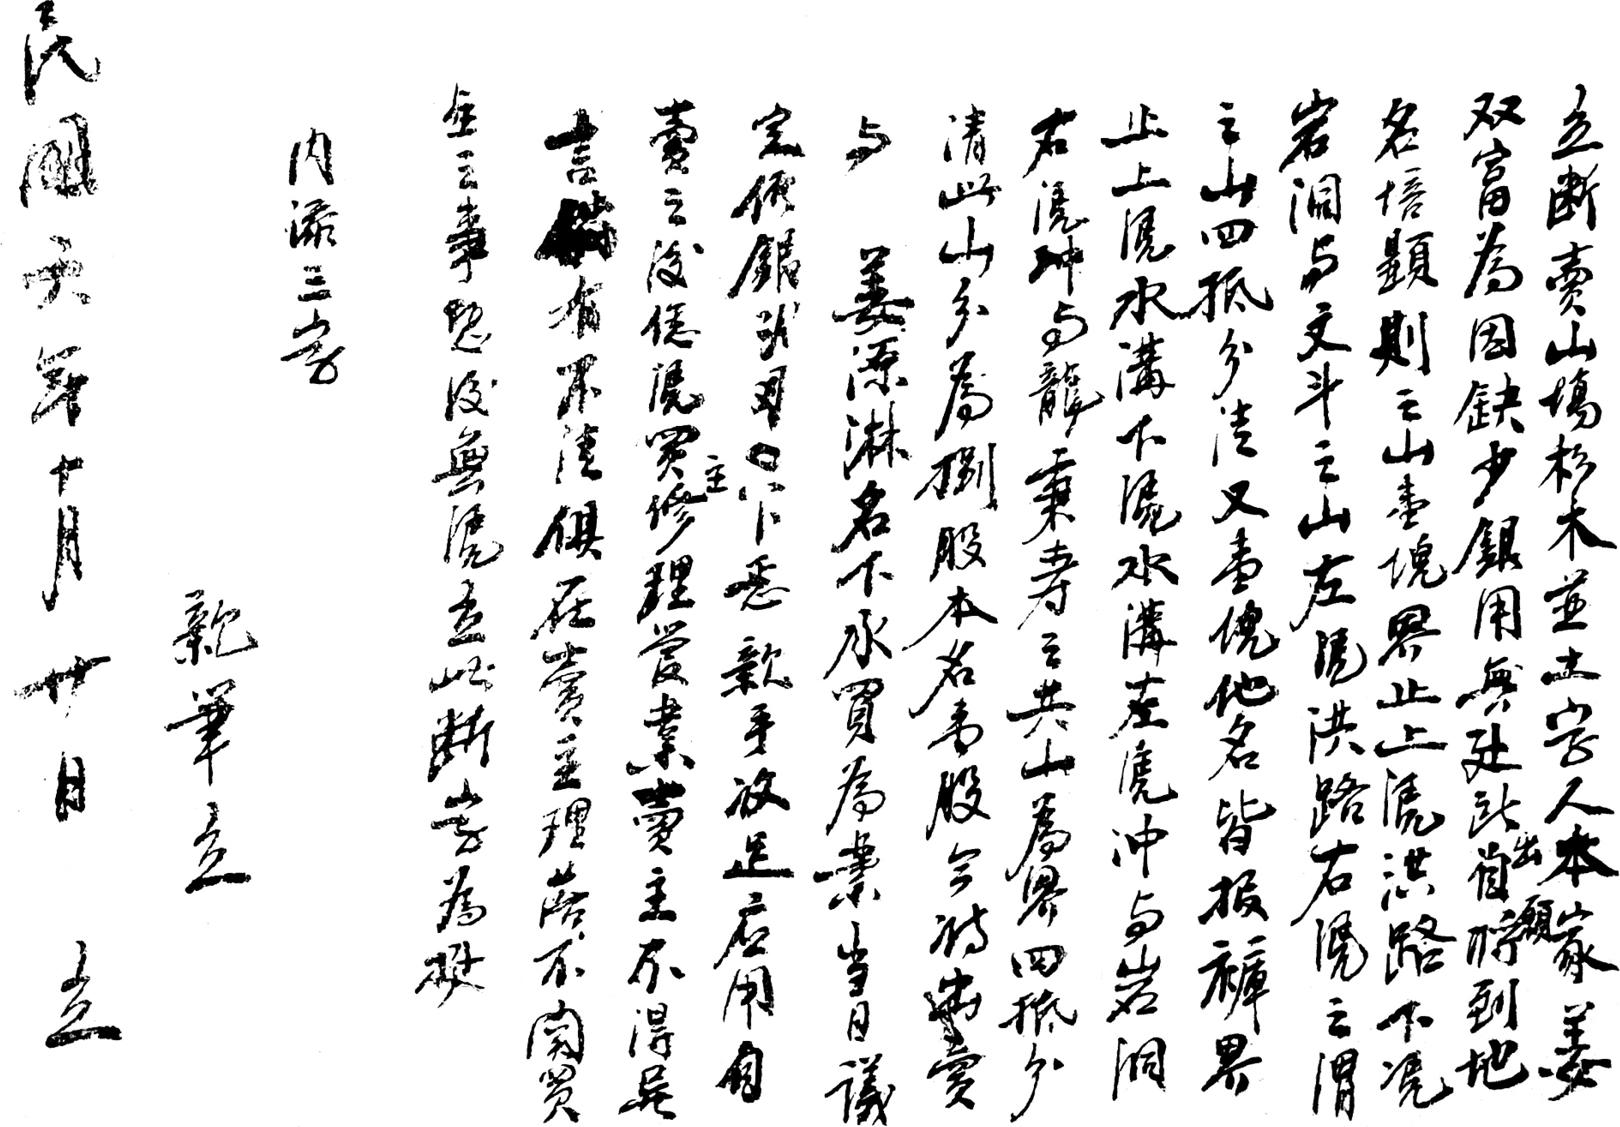 立断賣山塲杉木並土字人本家姜
双富為因缺少銀用無处所出自願將到地
名培顯則之山壹塊界止上凴洪路下凴
岩洞与文斗之山左凴洪路右凴之渭
之山四抵分清又壹塊地名皆报褲界
止上凴水溝下凴水溝左凴冲与岩洞
右凴冲与龍秉寿之共山為界四抵分
清此山分為捌股本名壹股今將出賣
与 姜源淋名下承買為業当日議
定價銀 下悉親手收足應用自
賣之後任凴買主修理管業賣主不得異
言倘有不清俱在賣主理落不関買
主之事恐後無凴立此断字為據
内添三字
親筆立
民國六年十月廿日 立